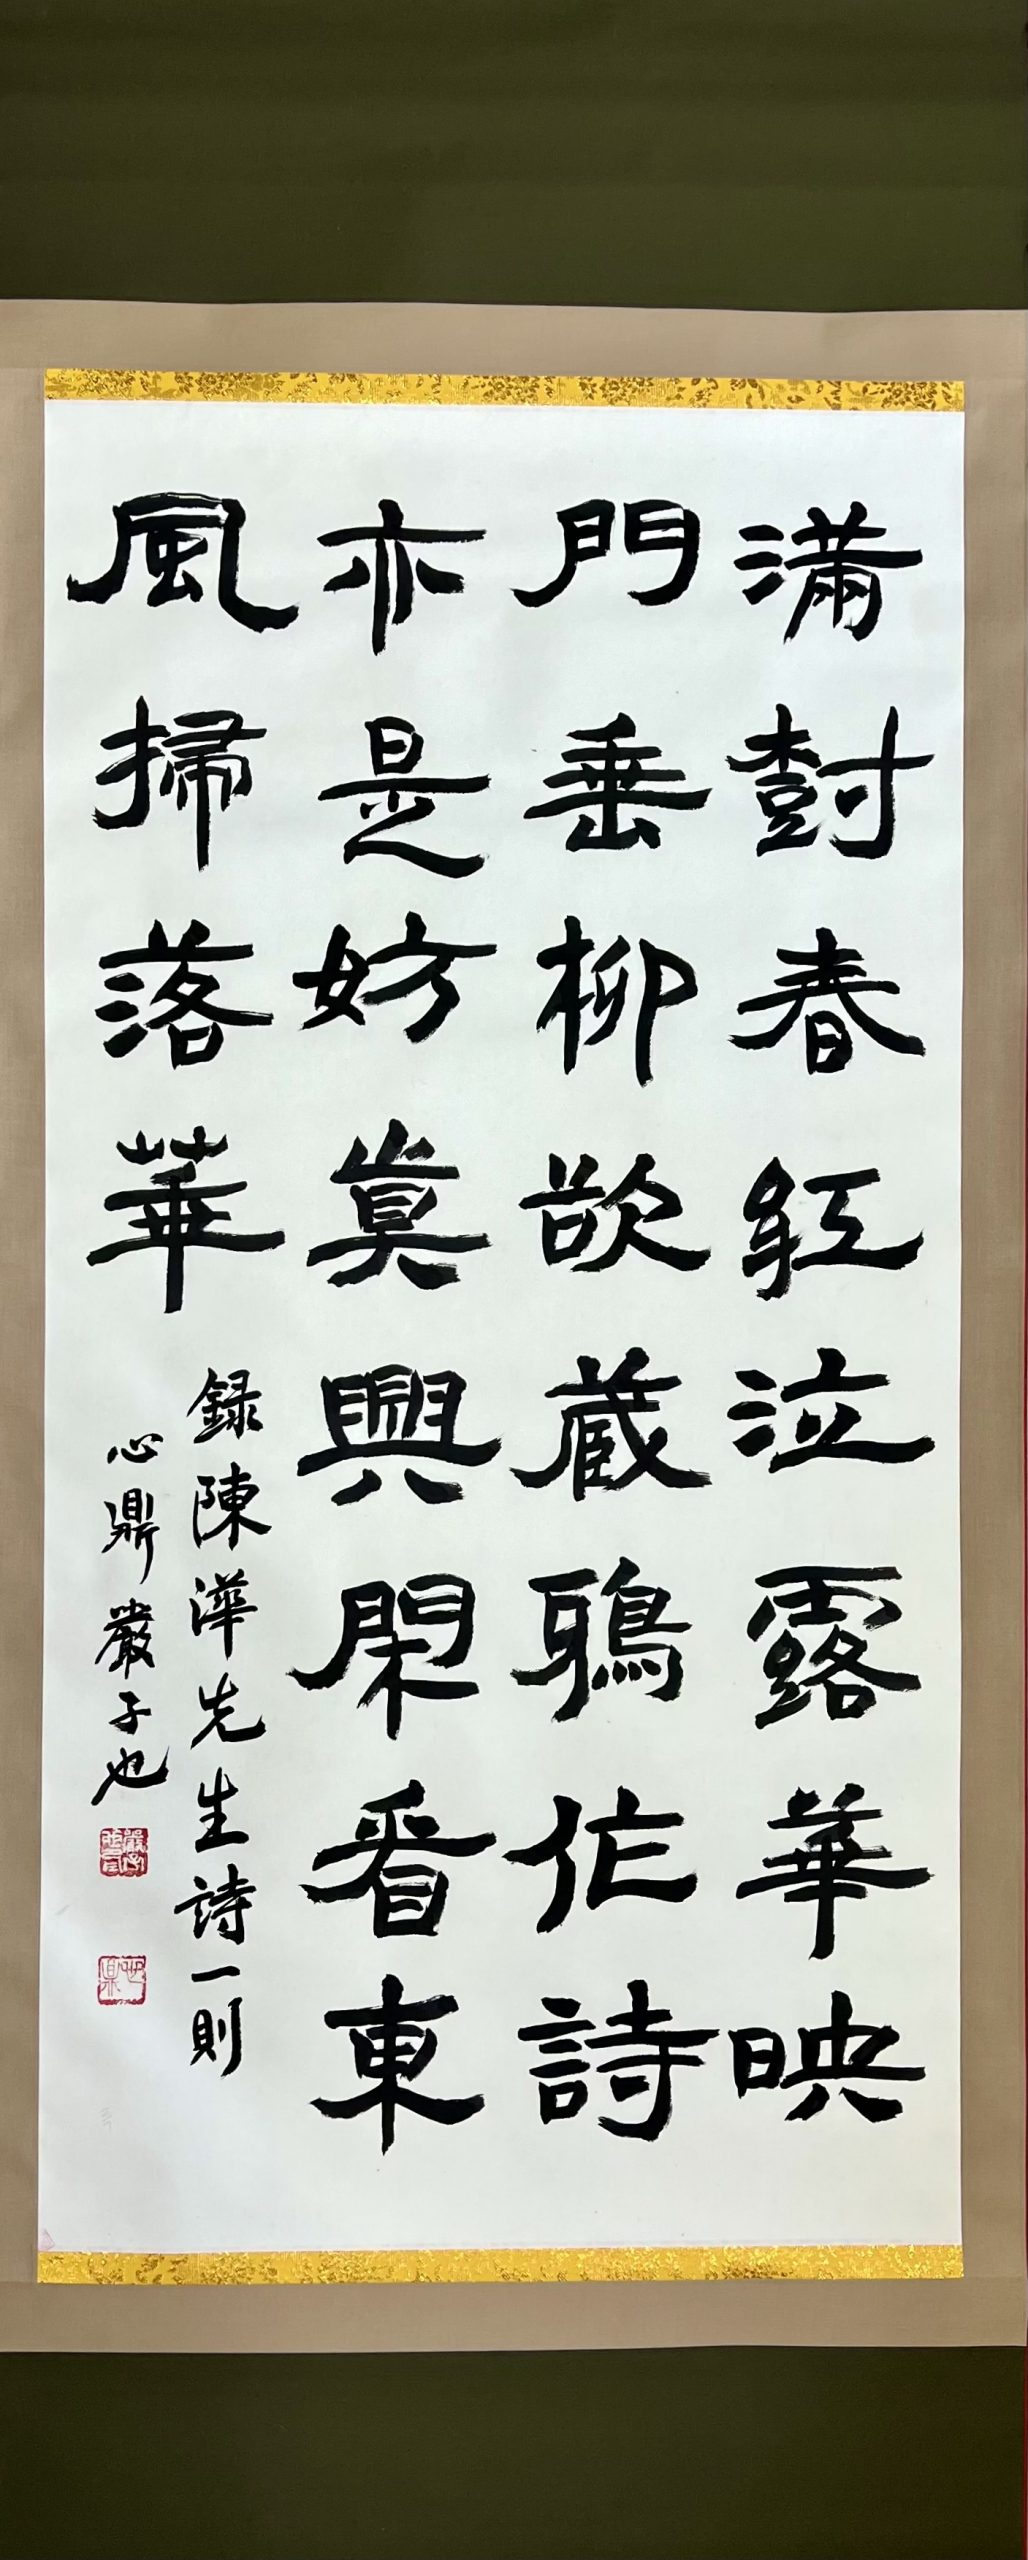 滿樹春紅泣露華映
門垂柳欲蔵鴉作詩
亦是妨眞興閑看東
風掃落華
録陳澕先生詩一則
心鼎嚴子也